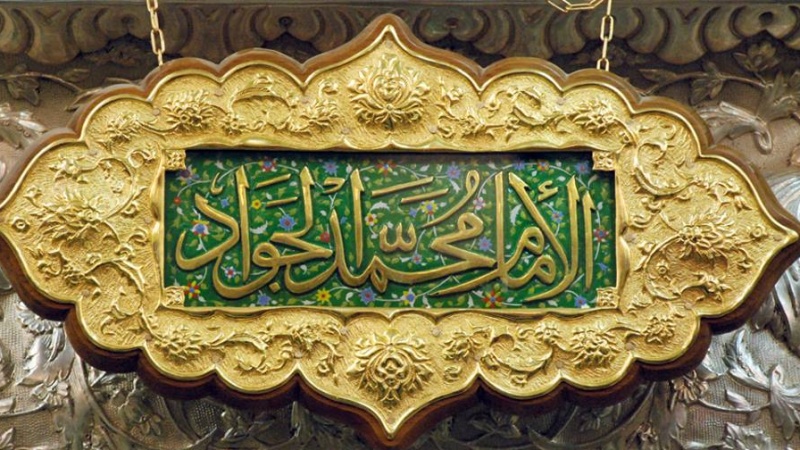 الإمام محمد الجواد